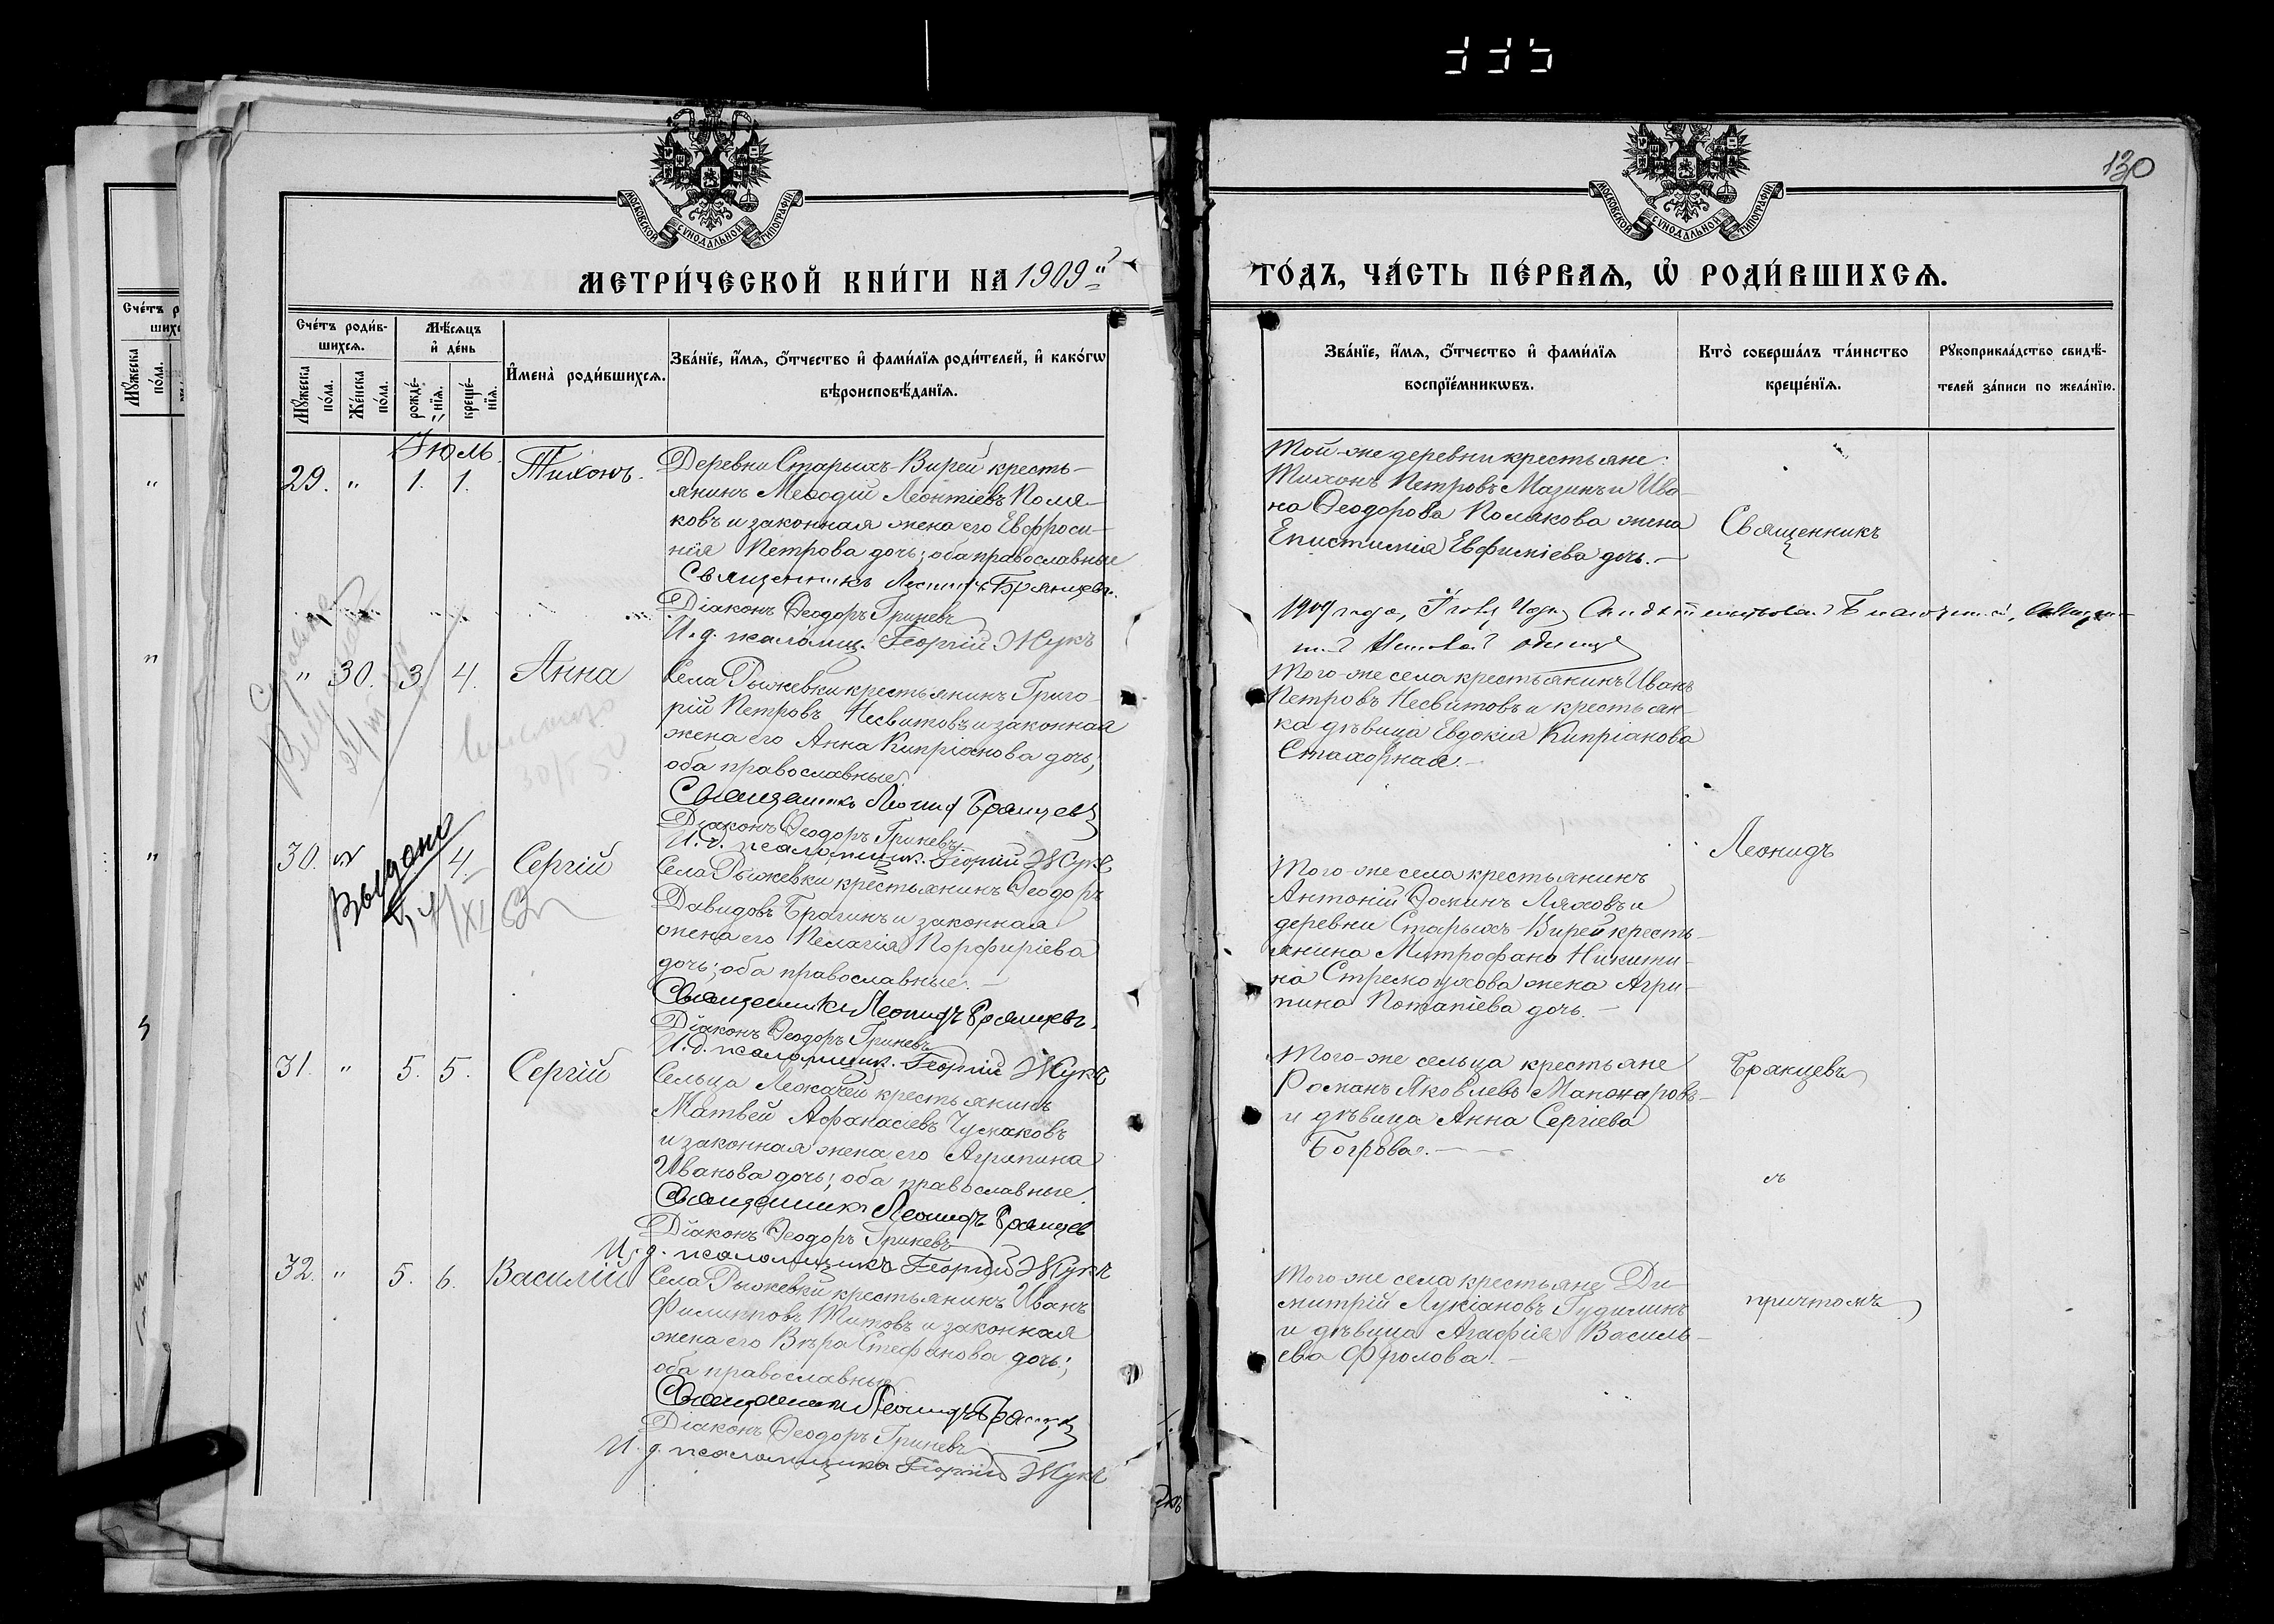 130
МОСКОВСКОЙ СѴНОДАЛЬНОЙ ТИПОГРАФІИ
МОСКОВСКОЙ СѴНОДАЛЬНОЙ ТИПОГРАФІИ
МЕТРИ́ЧЕСКОЙ КНИ́ГИ НА 1909
ГО́ДЪ, ЧА́СТЬ ПЕ́РВАѦ, Ѽ РОДИ́ВШИХСѦ.
Сче́тъ роди́в-
шихсѧ.
Мѣ́сѧцъ
и҆ де́нь
Мꙋ́жеска
по́ла.
Же́нска
по́ла.
рожде́-
нїѧ.
креще́-
нїѧ.
И҆мена̀ роди́вшихсѧ.
Зва́нїе, и҆́мѧ, ѻ҆́тчество и҆ фами́лїѧ роди́телей, и҆ како́гѡ
вѣроисповѣ́данїѧ.
Зва́нїе, и҆́мѧ, ѻ҆́тчество и҆ фами́лїѧ
воспрїе́мникѡвъ.
Кто̀ соверша́лъ та́инство
креще́нїѧ.
Рꙋкоприкла́дство свидѣ́-
телей за́писи по жела́нїю.
Іюль
29. " 1. 1. Тихонъ.
Деревни Старыхъ-Вирей кресть-
янинъ Меѳодій Леонтіевъ Поля-
ковъ и законная жена его Евфроси-
нія Петрова дочь; оба православные
Священникъ Леонидъ Брянцевъ.
Діаконъ Ѳеодоръ Гриневъ
И. д. псаломщ. Георгій Жукъ
Той-же деревни крестьяне:
Тихонъ Петровъ Мазинъ и Ива-
на Ѳеодорова Полякова жена
Епистимія Евфиміева дочь.
Священникъ
1909 года,
" 30. 3. 4. Анна
Села Рыжевки крестьянинъ Григо-
рій Петровъ Несвитовъ и законная
жена его Анна Кипріанова дочь;
оба православные
Священникъ Леонид Брянцевъ
Діаконъ Ѳеодоръ Гриневъ
И. д. псаломщик. Георгій Жукъ
Того-же села крестьянинъ Иванъ
Петровъ Несвитовъ и крестьян-
ка дѣвица Евдокія Кипріанова
Стахорная.
Выдано
30. 4. Сергій
Села Рыжевки крестьянинъ Ѳеодоръ
Давидовъ Брагинъ и законная
жена его Пелагія Порфиріева
дочь; оба православные.
Священникъ Леонидъ Брянцевъ.
Діаконъ Ѳеодоръ Гриневъ
И. д. псаломщик. Георгій Жукъ
Того-же села крестьянинъ
Антоній Ѳоминъ Ляховъ и
деревни Старыхъ Вирей кресть-
янина Митрофана Никити-
на Стремоухова жена Агри-
пина Потапіева дочь.
Леонидъ
31. " 5. 5. Сергій
Сельца Лежачей крестьянинъ
Матвей Аѳанасіевъ Чускаковъ
и законная жена его Агрипина
Иванова дочь; оба православные.
Священникъ Леонидъ Брянцев
Діаконъ Ѳеодоръ Гриневъ
И. д. псаломщикъ Георгій Жукъ
Того-же сельца крестьяне
Романъ Яковлевъ Манжаровъ
и дѣвица Анна Сергіева
Богрова.
Брянцевъ
съ
32. " 5. 6. Василій
Села Рыжевки крестьянинъ Иванъ
Филипповъ Титовъ и законная
жена его Вѣра Стефанова дочь;
оба православные
Священникъ Леонидъ Брянцевъ
Діаконъ Ѳеодоръ Гриневъ
И. д. псаломщика Георгій Жукъ
Того-же села крестьяне Ди-
митрій Лукіановъ Гудилинъ
и дѣвица Агафія Василь-
ева Фролова.
причтомъ